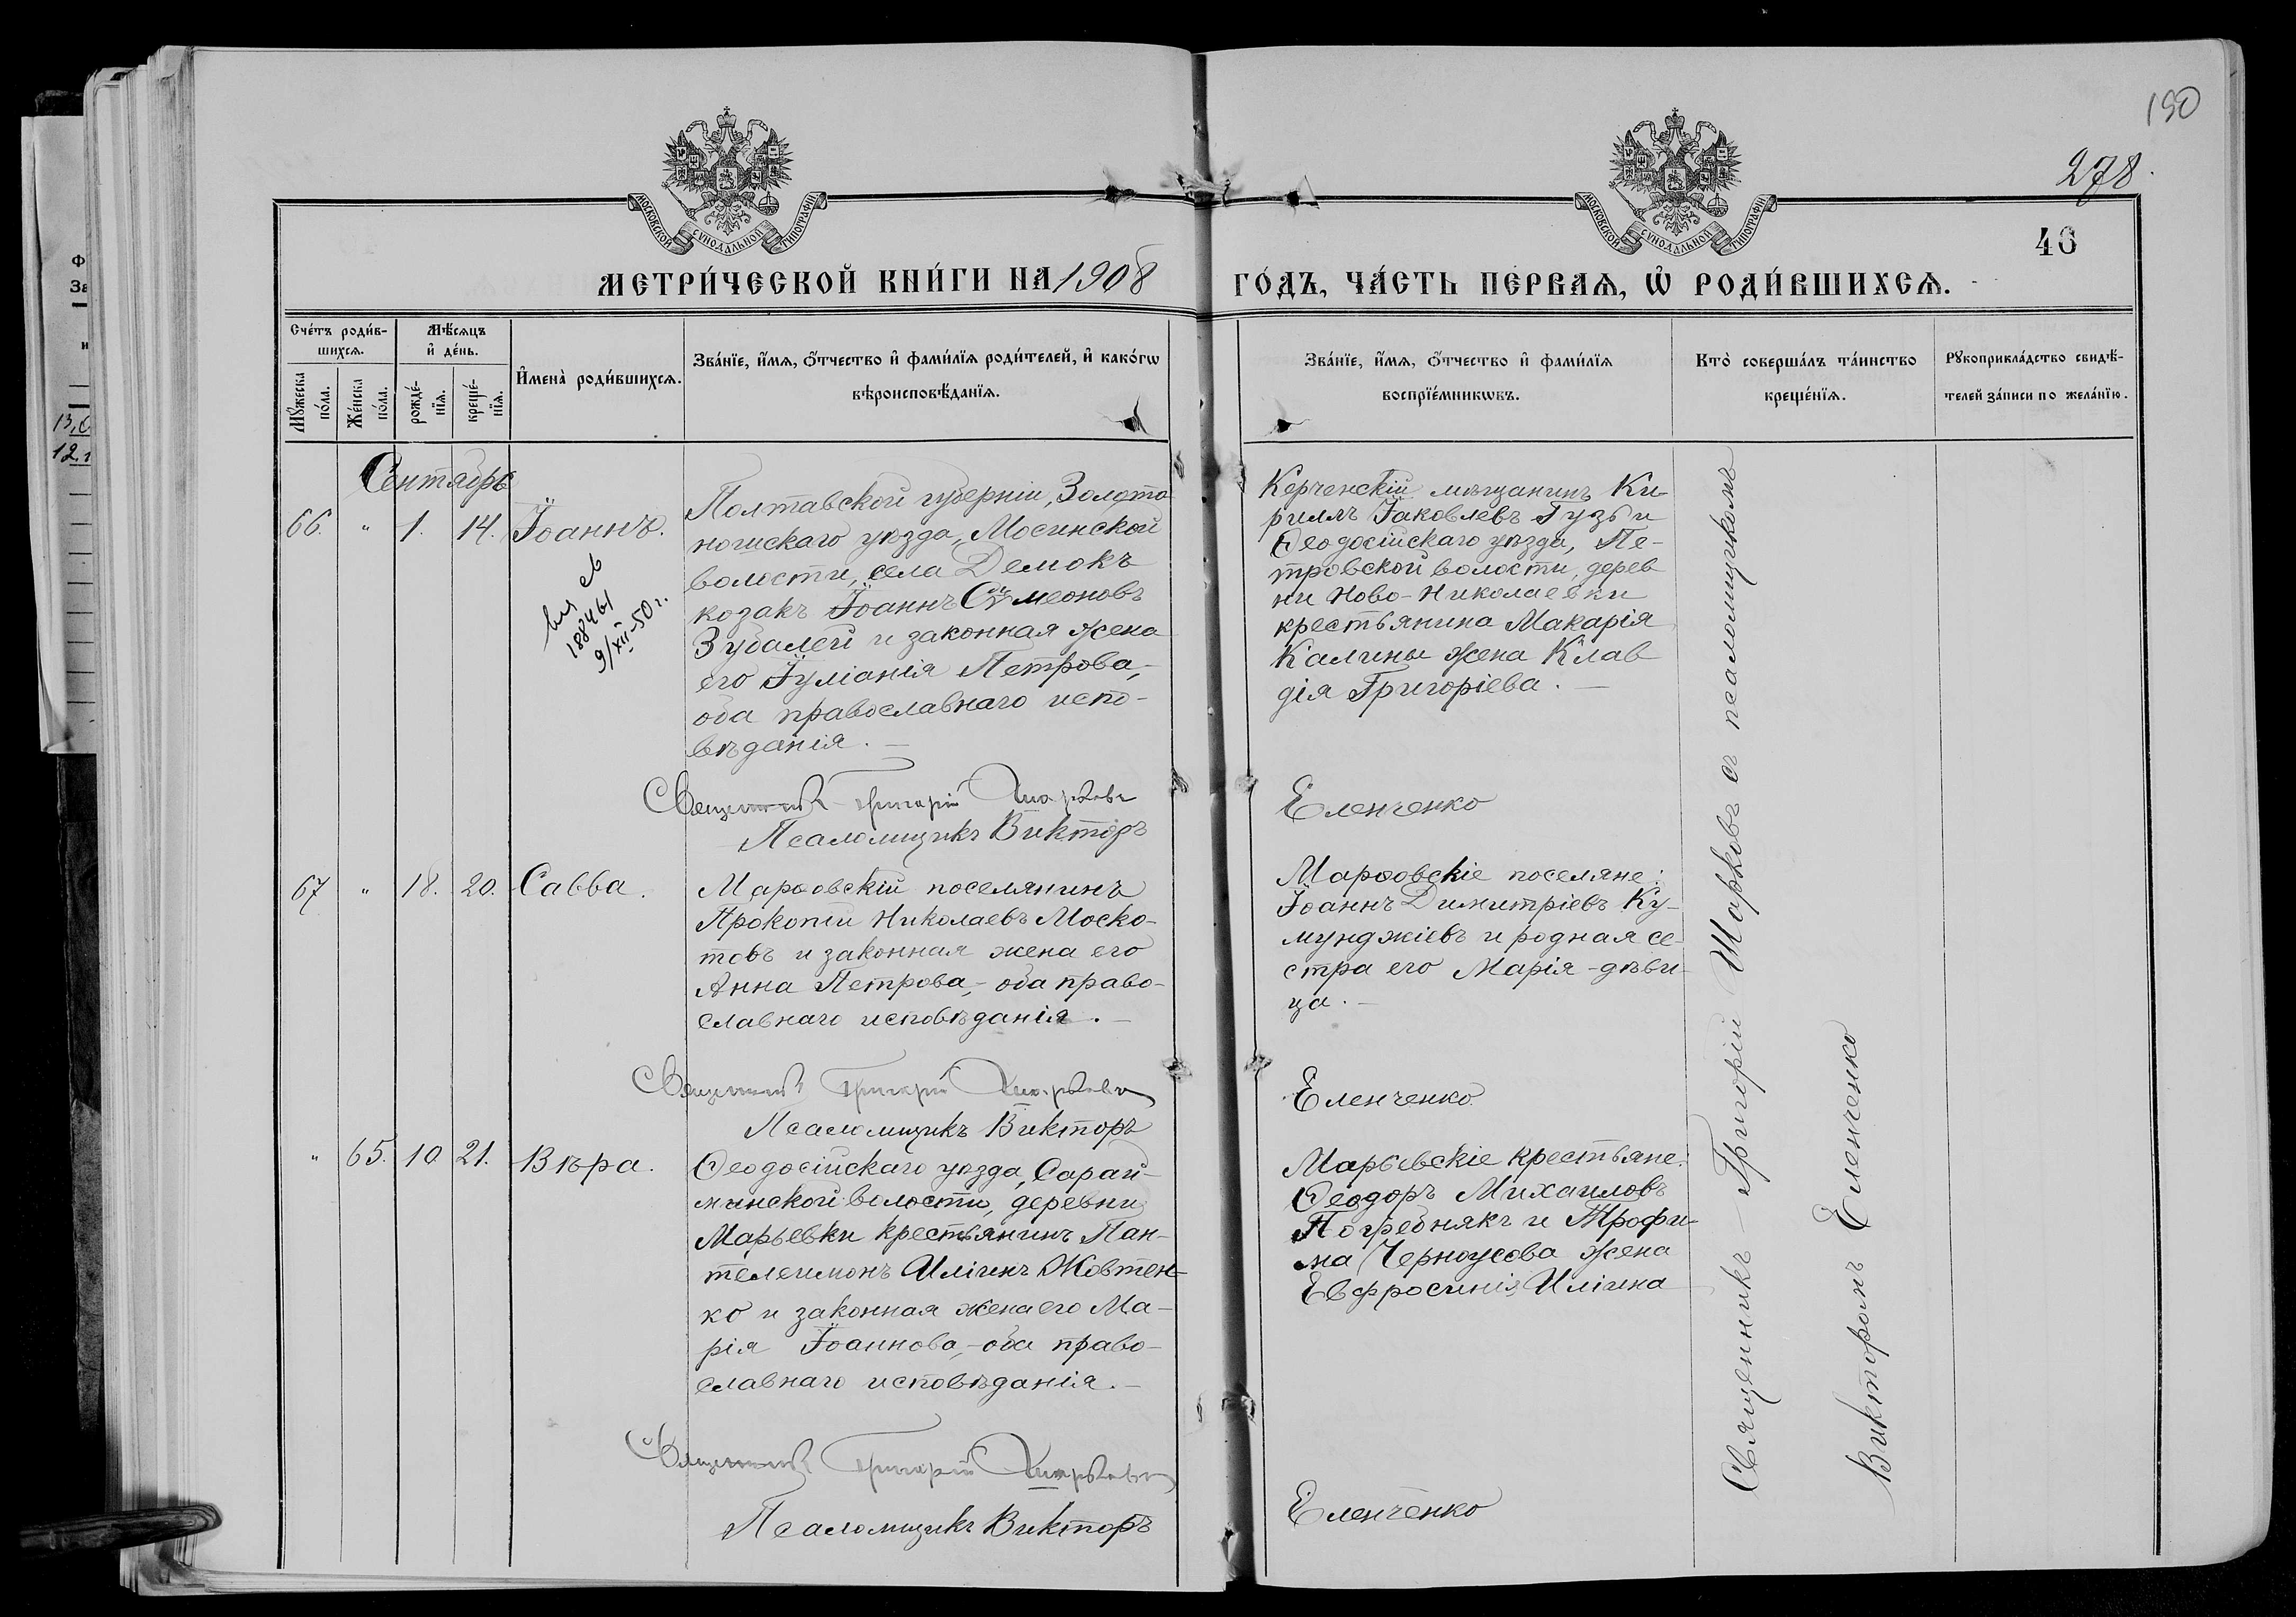 190
278.
46
МОСКОВСКОЙ СѴНОДАЛЬНОЙ ТИПОГРАФІИ
МОСКОВСКОЙ СѴНОДАЛЬНОЙ ТИПОГРАФІИ
МЕТРИ́ЧЕСКОЙ КНИ́ГИ НА 1908
ГО́ДЪ, ЧА́СТЬ ПЕ́РВАѦ, Ѡ҆ РОДИ́ВШИХСѦ.
Сче́тъ роди́в-
шихсѧ.
Мꙋ́жеска
по́ла.
Же́нска
по́ла.
Мѣ́сѧцъ
и҆ де́нь.
рожде́-
нїѧ.
креще́-
нїѧ.
И҆мена̀ роди́вшихсѧ.
Зва́нїе, и҆́мѧ, ѻ҆́тчество и҆ фами́лїѧ роди́телей, и҆ како́гѡ
вѣроисповѣ́данїѧ.
Зва́нїе, и҆́мѧ, ѻ҆́тчество и҆ фами́лїѧ
воспрїе́мникѡвъ.
Кто̀ соверша́лъ та́инство
креще́нїѧ.
Рꙋкоприкла́дство свидѣ́-
телей за́писи по жела́нїю.
Сентябрь
66. " 1. 14. Іоаннъ.
188461
9/XII-50 г.
Полтавской губерніи, Золото
ношскаго уѣзда, Мосинской
волости, села Демокъ
козакъ Іоаннъ Сѵмеоновъ
Зубалей и законная жена
его Іуліанія Петрова,-
оба православнаго испо-
вѣданія.—
Священникъ Григорій Шарковъ
Псаломщикъ Викторъ
Керченскій мѣщанинъ Ки-
риллъ Іаковлевъ Гузь и
Ѳеодосійскаго уѣзда, Пе-
тровской волости, дерев
ни Ново-Николаевки
крестьянина Макарія
Калины жена Клав
дія Григоріева.—
Еленченко
67 " 18. 20. Савва.
Марѳовскій поселянинъ
Прокопій Николаевъ Моско-
товъ и законная жена его
Анна Петрова,- оба право-
славнаго исповѣданія.—
Священникъ Григорій Шарковъ
Псаломщикъ Викторъ
Марѳовскіе поселяне:
Іоаннъ Димитріевъ Ку-
мунджіевъ и родная се-
стра его Марія - дѣви-
ца.—
Еленченко
" 65. 10. 21. Вѣра.
Ѳеодосійскаго уѣзда, Сарай-
минской волости, деревни
Марьевки крестьянинъ Пан-
телеимонъ Иліинъ Жовтен-
ко и законная жена его Ма-
рія Іоаннова,- оба право-
славнаго исповѣданія.—
Священникъ Григорій Шарковъ
Псаломщикъ Викторъ
Марьевскіе крестьяне:
Ѳеодоръ Михаиловъ
Погребнякъ и Трофи-
ма Черноусова жена
Евфросинія Иліина
Еленченко
Священникъ - Григорій Шарковъ съ псаломщикомъ
Викторомъ Еленченко